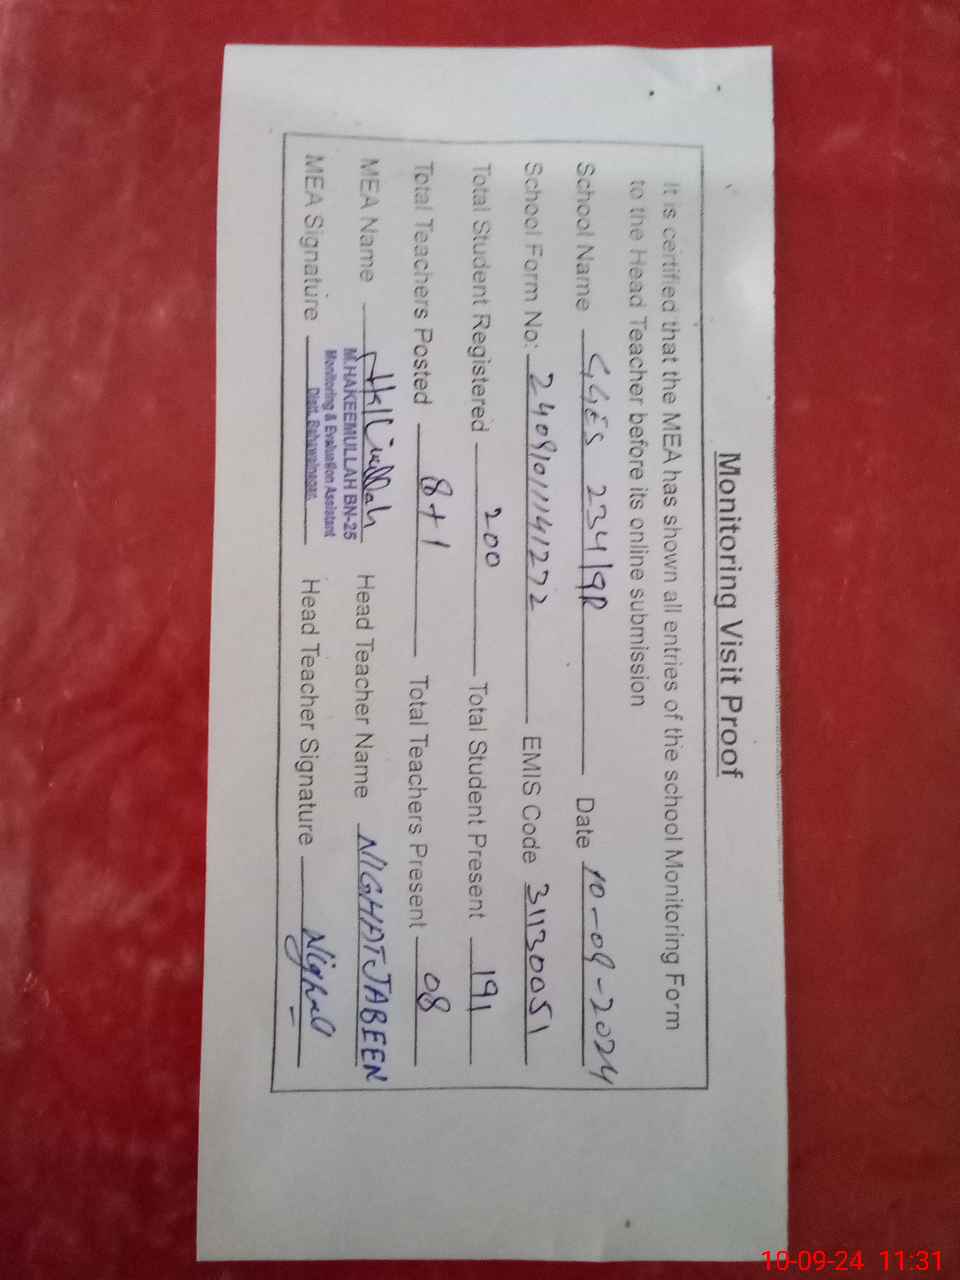 Monitoring Visit Proof
It is certified that the MEA has shown all entries of the school Monitoring Form
to the Head Teacher before its online submission
School Name GGES 234/9R Date 10-09-2024
School Form No: EMIS Code 31130051
Total Student Registered 200 Total Student Present 191
Total Teachers Posted 8+1 Total Teachers Present 08
MEA Name Head Teacher Name NIGHAT JABEEN
M.HAKEEMULLAH BN-25
Monitoring & Evaluation Assistant
Distt. Bahawalnagar.
MEA Signature Head Teacher Signature Nighat
10-09-24 11:31